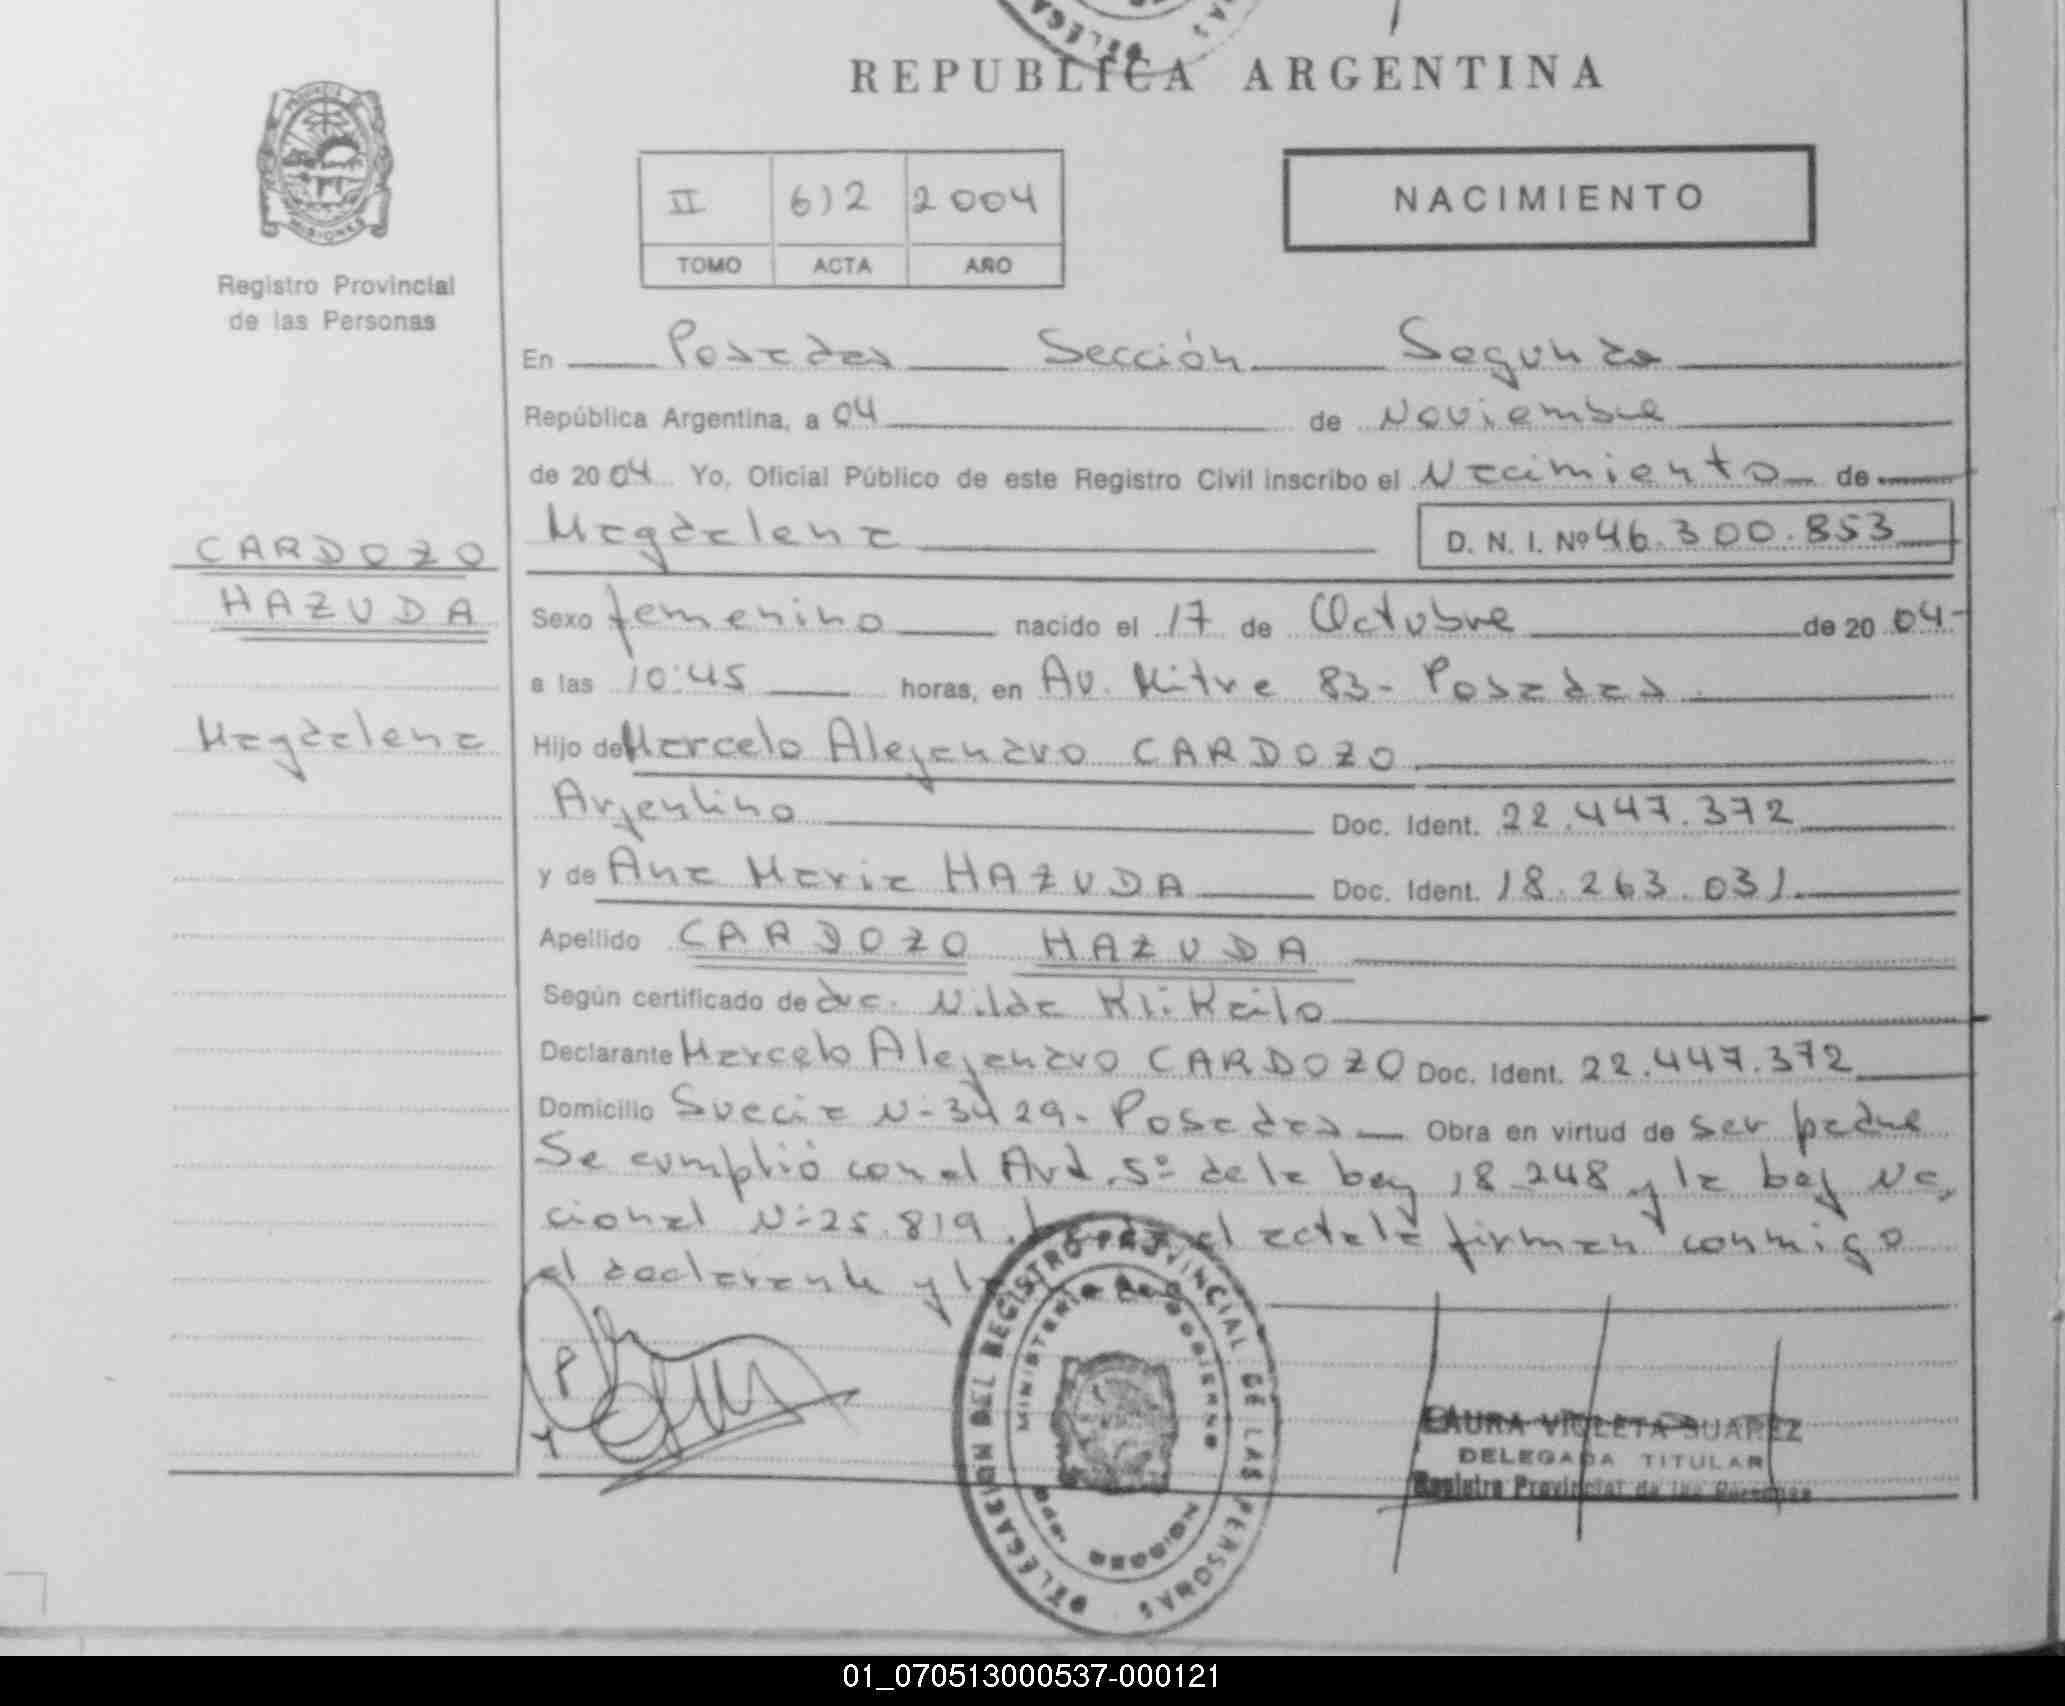 DELEGA
AS
REPUBLICA ARGENTINA
PROVINCIA DE
MISIONES
Registro Provincial
de las Personas
II 612 2004
TOMO ACTA AÑO
NACIMIENTO
En Posadas Sección Segunda
República Argentina, a 04 de Noviembre
de 2004 Yo, Oficial Público de este Registro Civil inscribo el Nacimiento de
CARDOZO
HAZUDA
Magdalena
Magdalena D. N. I. Nº 46.300.853
Sexo femenino nacido el 17 de Octubre de 20 04-
a las 10:45 horas, en Av. Mitre 83- Posadas.
Hijo de Marcelo Alejandro CARDOZO
Argentino Doc. Ident. 22.447.372
y de Ana Maria HAZUDA Doc. Ident. 18.263.031.
Apellido CARDOZO HAZUDA
Según certificado de dra. Nilda KliKailo
Declarante Marcelo Alejandro CARDOZO Doc. Ident. 22.447.372
Domicilio Suecia N-3429- Posadas Obra en virtud de ser padre
Se cumplió con el Art. 5º de la Ley 18.248 y la Ley Na
cional N-25.819. el acta la firman conmigo
el declarante y la
DELEGACION DEL REGISTRO PROVINCIAL DE LAS PERSONAS
MINISTERIO DE GOBIERNO
LAURA VIOLETA SUAREZ
DELEGADA TITULAR
Registro Provincial de las Personas
01_070513000537-000121